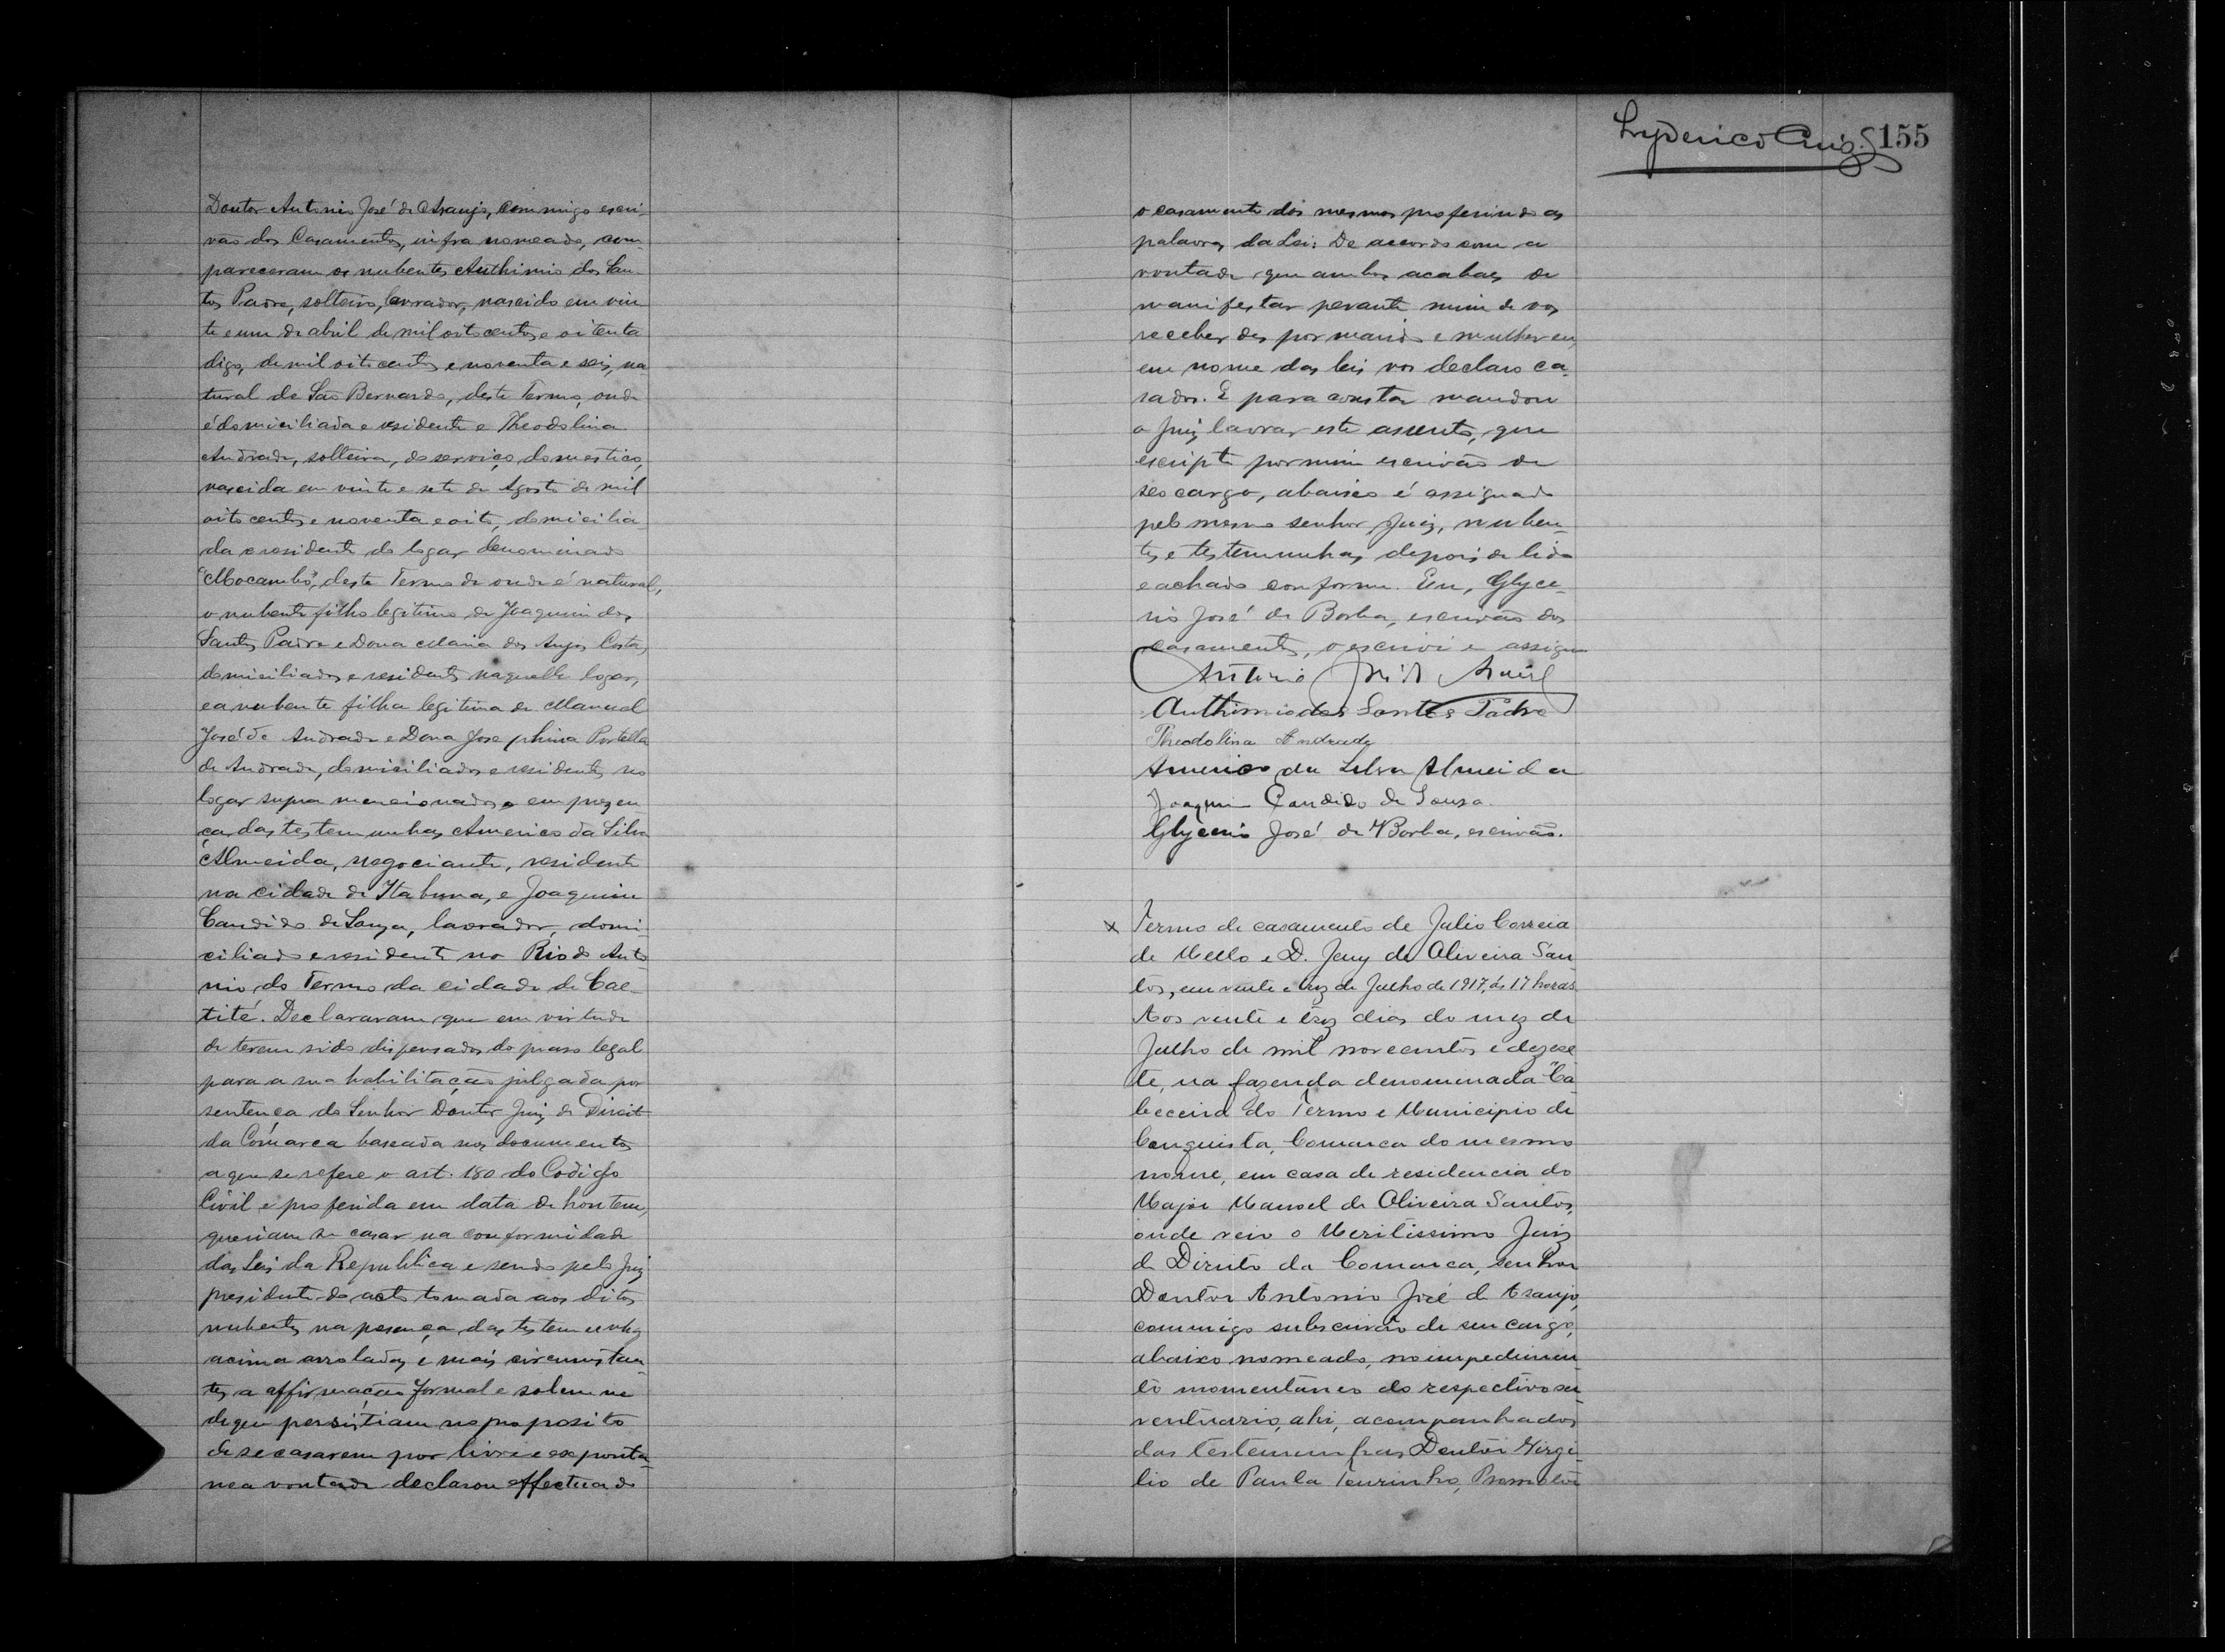 Doutor Antonio José de Araujo, commigo escri-
vão dos Casamentos, infra nomeado, com-
pareceram os nubentes Anthimio dos San-
tos Padre, solteiro, lavrador, nascido em vin-
te e um de abril de mil oitocentos e oitenta
digo, de mil oitocentos e noventa e seis, na
tural de São Bernardo, deste Termo, onde
é domiciliado e residente e Theodolina
Andrade, solteira, de serviço domestico,
nascida em vinte e sete de Agosto de mil
oitocentos e noventa e oito, domicilia
da e residente do logar denominado
"Mocambo", deste Termo de onde é natural,
o nubente filho legitimo de Joaquim dos
Santos Padre e Dona Maria dos Anjos Costa,
domiciliados e residentes naquelle logar,
e a nubente filha legitima de Manuel
José de Andrade e Dona Josephina Portella
de Andrade, domiciliados e residentes no
logar supra mencionado, e em presen
ça das testemunhas Americo da Silva
Almeida, negociante, residente
na cidade de Itabuna, e Joaquim
Candido de Souza, lavrador, domi-
ciliado e residente no Rio do Anto
nio do Termo da cidade de Cae-
tité. Declararam que em virtude
de terem sido dispensados do praso legal
para a sua habilitação julgada por
sentença do Senhor Doutor Juiz de Direito
da Comarca baseada nos documentos
a que se refere o art. 180 do Codigo
Civil e proferida em data de hontem,
queriam se casar na conformidade
das Leis da Republica e sendo pelo Juiz
presidente do acto tomada aos ditos
nubentes na presença das testemunhas
acima arroladas e mais circumstan
tes a affirmação formal e solemne
de que persistiam no proposito
de se casarem por livre e esponta-
nea vontade declarou effectuado
Lyderico Cruz. 155
o casamento dos mesmos proferindo as
palavras da Lei: De accordo com a
vontade que ambos acabaes de
manifestar perante mim de vos
receberdes por marido e mulher eu,
em nome das leis vos declaro ca-
sados. E para constar mandou
o Juiz lavrar este assento, que
escripto por mim escrivão de
seo cargo, abaixo é assignado
pelo mesmo senhor Juiz, nuben-
tes e testemunhas, depois de lido
e achado conforme. Eu, Glyce-
rio José de Borba, escrivão dos
casamentos, o escrivi e assigno
Antonio José de Araujo
Anthimio dos Santos Padre
Theodolina Andrade
Americo da Silva Almeida
Joaquim Candido de Souza.
Glycerio José de Borba, escrivão.
x Termo de casamento de Julio Correia
de Mello e D. Jeny de Oliveira San-
tos, em vinte e trez de Julho de 1917, ás 17 horas.
Aos vinte e trez dias do mez de
Julho de mil novecentos e dezese
te, na fazenda denominada "Ca
beceira" do Termo e Municipio de
Conquista, Comarca do mesmo
nome, em casa de residencia do
Major Manoel de Oliveira Santos,
onde veio o Meritissimo Juiz
de Direito da Comarca, senhor
Doutor Antonio José de Araujo,
commigo subscrivão de seu cargo,
abaixo nomeado, no impedimen-
to momentaneo do respectivo ser
ventuario, ahi, acompanhados
das testemunhas Doutor Virgi-
lio de Paula Tourinho, Promotor